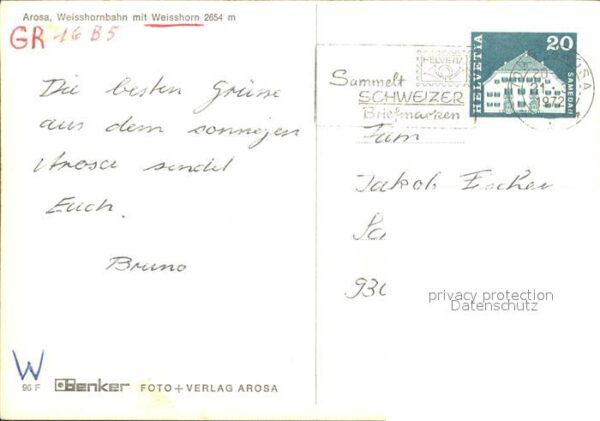 Arosa, Weisshornbahn mit Weisshorn 2654 m
GR 16 B5
HELVETIA 20
SAMEDAN
AROSA
21
1972
HELVETIA
Sammelt
SCHWEIZER
Briefmarken
Die besten Grüsse
aus dem sonnigen
Arosa sendet
Euch.
Bruno
Fam
Jakob Escher
930
privacy protection
Datenschutz
W
96 F
Benker FOTO+VERLAG AROSA